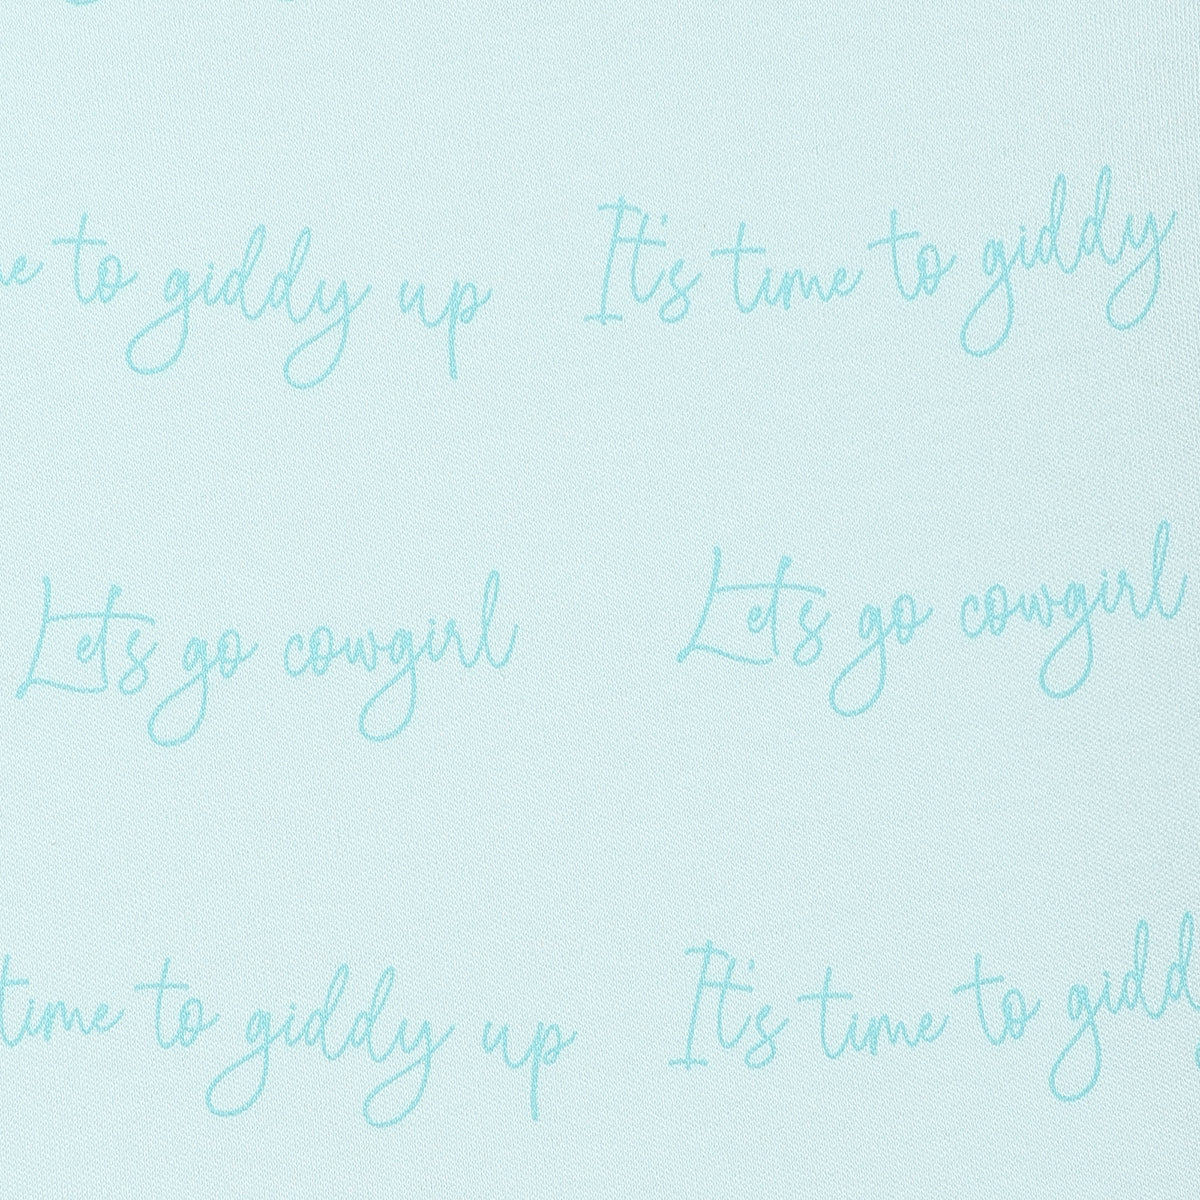 to giddy up It's time to giddy
Let's go cowgirl Let's go cowgirl
time to giddy up It's time to